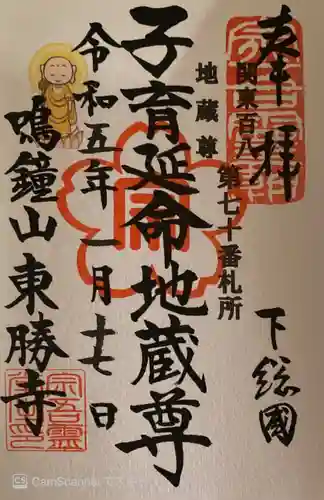 奉拝
関東百八
地蔵尊
第七十番札所
下総國
子育延命地蔵尊
令和五年一月十七日
鳴鐘山東勝寺
宗吾霊
CS CamScanner